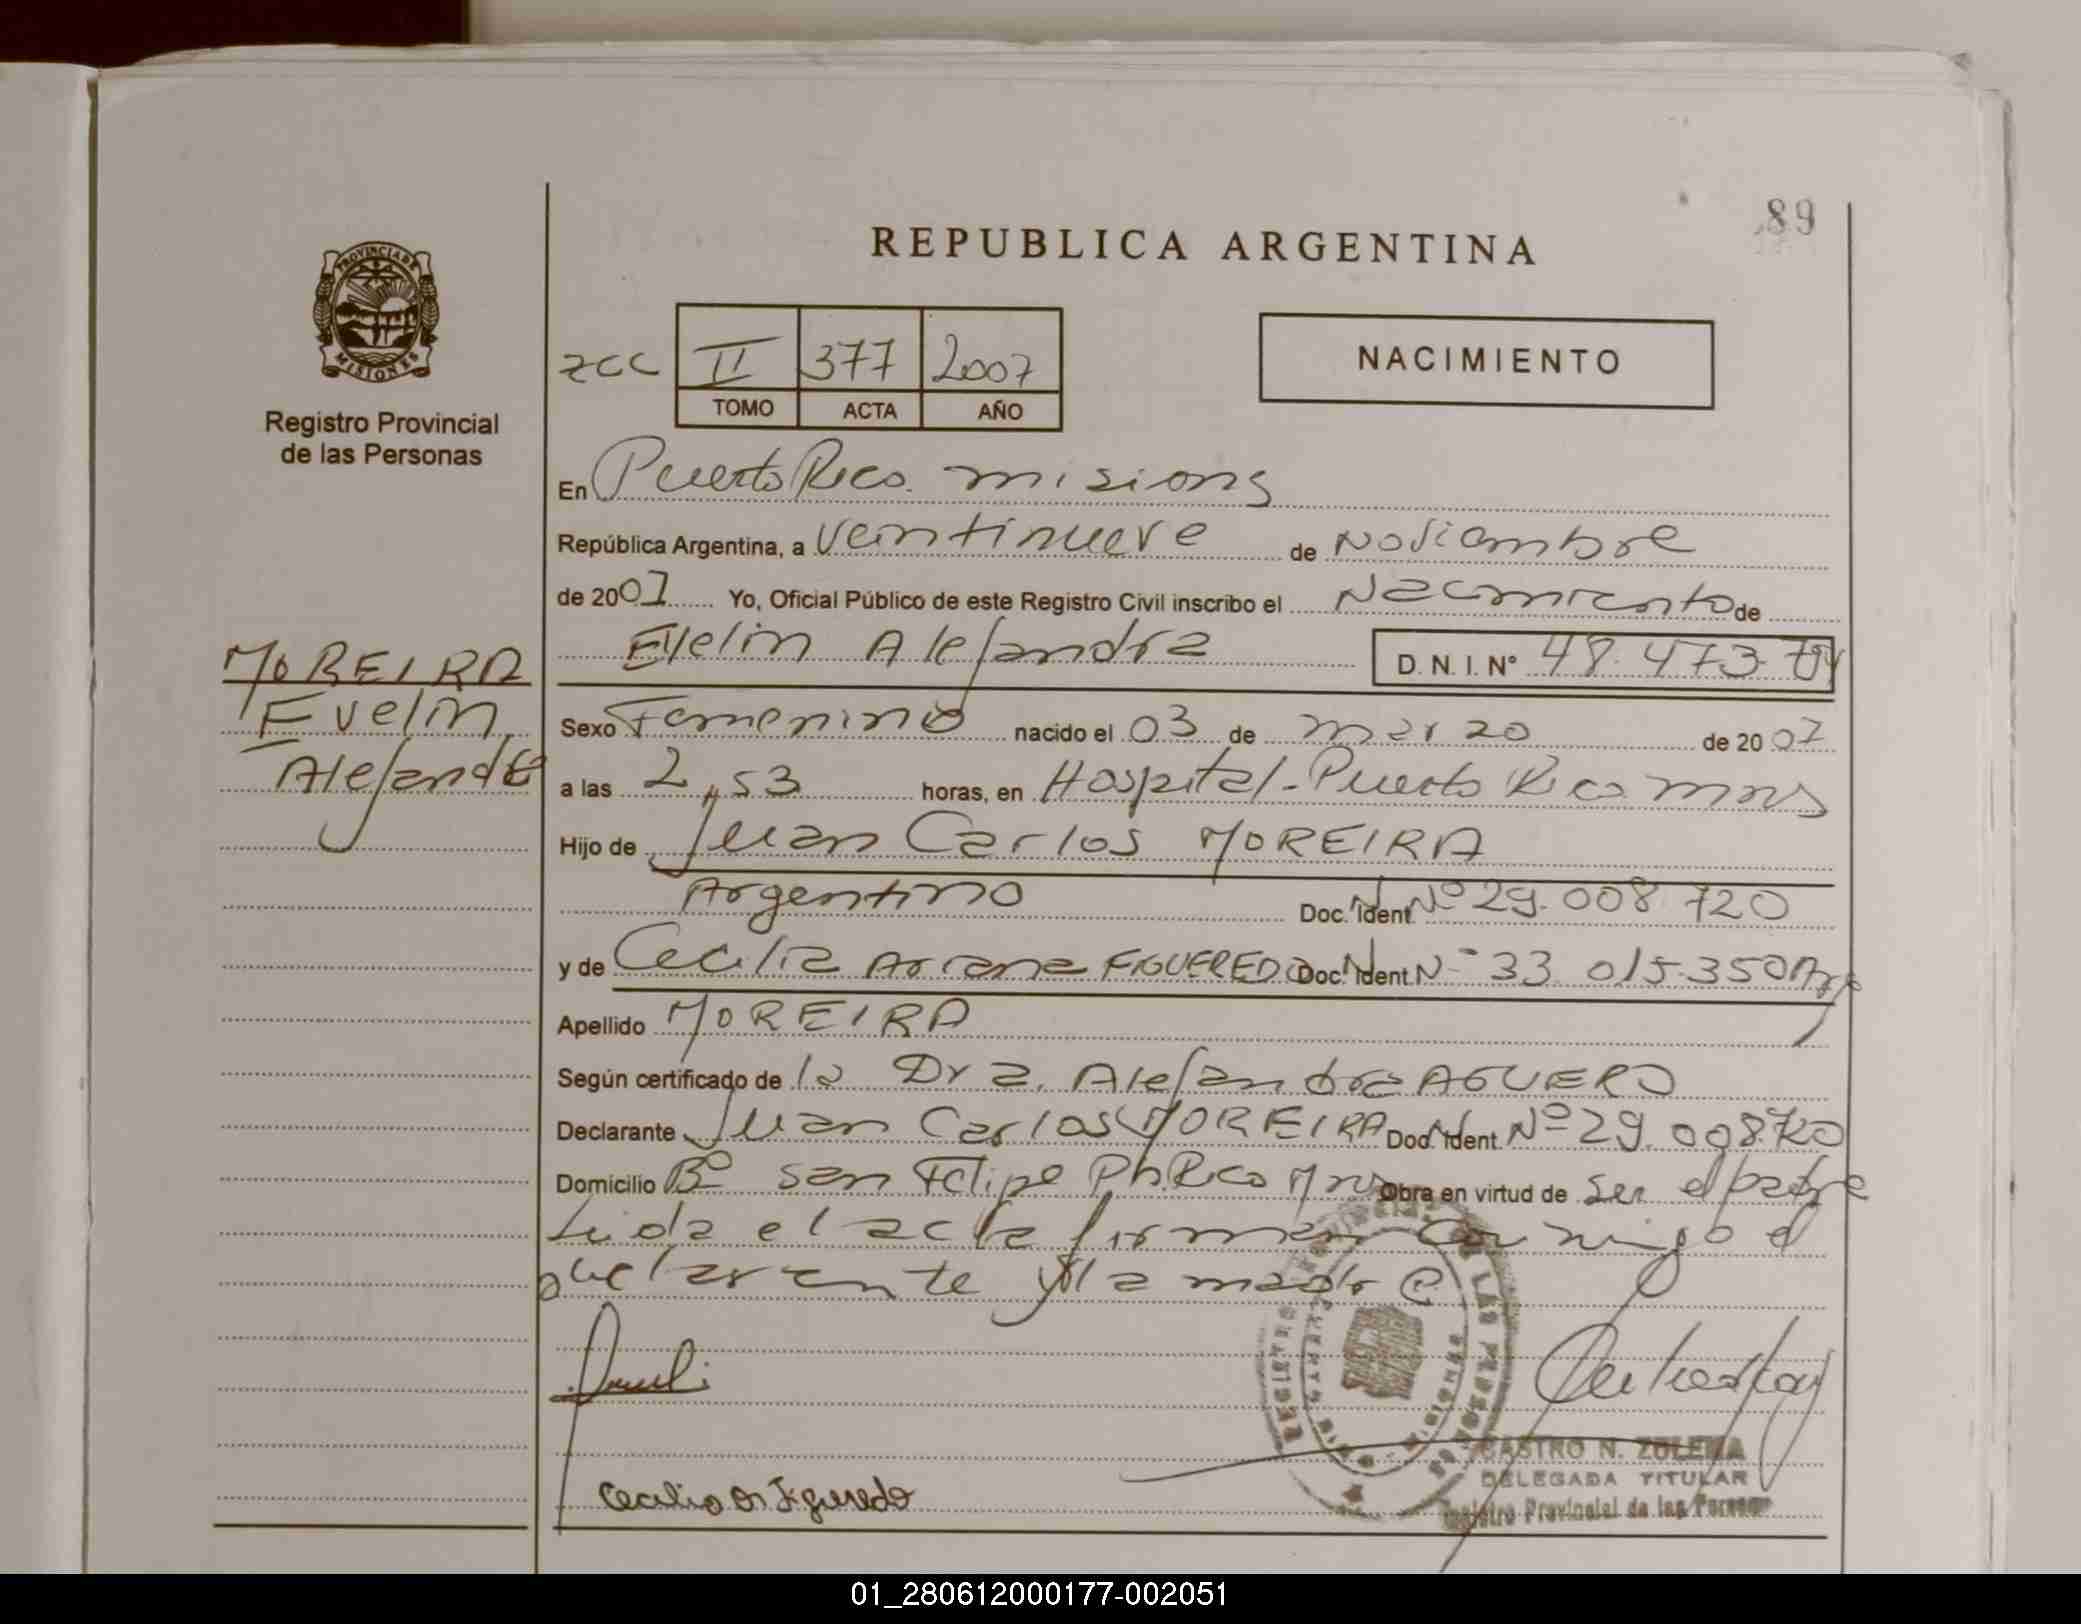 89
REPUBLICA ARGENTINA
PROVINCIA DE
MISIONES
Registro Provincial
de las Personas
zcc II 377 2007
TOMO ACTA AÑO
NACIMIENTO
En Puerto Rico. misiones
República Argentina, a veintinueve de Noviembre
de 2007 Yo, Oficial Público de este Registro Civil inscribo el Nacimiento de
Evelin Alejandra D.N.I. Nº 48.473.
MOREIRA
Evelin
Alejandra
Sexo Femenino nacido el 03 de marzo de 2007
a las 2,53 horas, en Hospital - Puerto Rico mns
Hijo de Juan Carlos MOREIRA
Argentino Doc. Ident. Nº 29.008.720
y de Cecilia Ariana FIGUEREDO Doc. Ident. Nº 33.015.350 Arg
Apellido MOREIRA
Según certificado de la Dra. Alejandra AGUERO
Declarante Juan Carlos MOREIRA Doc. Ident. Nº 29.008.720
Domicilio Bº San Felipe Pto. Rico Mns Obra en virtud de ser el padre
Leida el acta firman con migo el
declarante y la madre
Cecilia A. Figueredo
CASTRO N. ZULEMA
DELEGADA TITULAR
Registro Provincial de las Personas
01_280612000177-002051